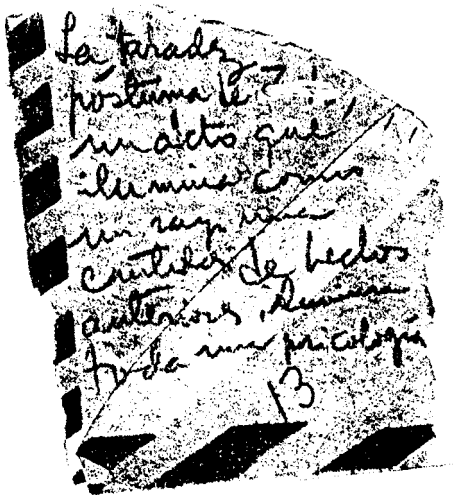 La taradez
póstuma de
un acto que
ilumina como
un rayo una
cantidad de hechos
anteriores, ilumina
toda una psicología
13